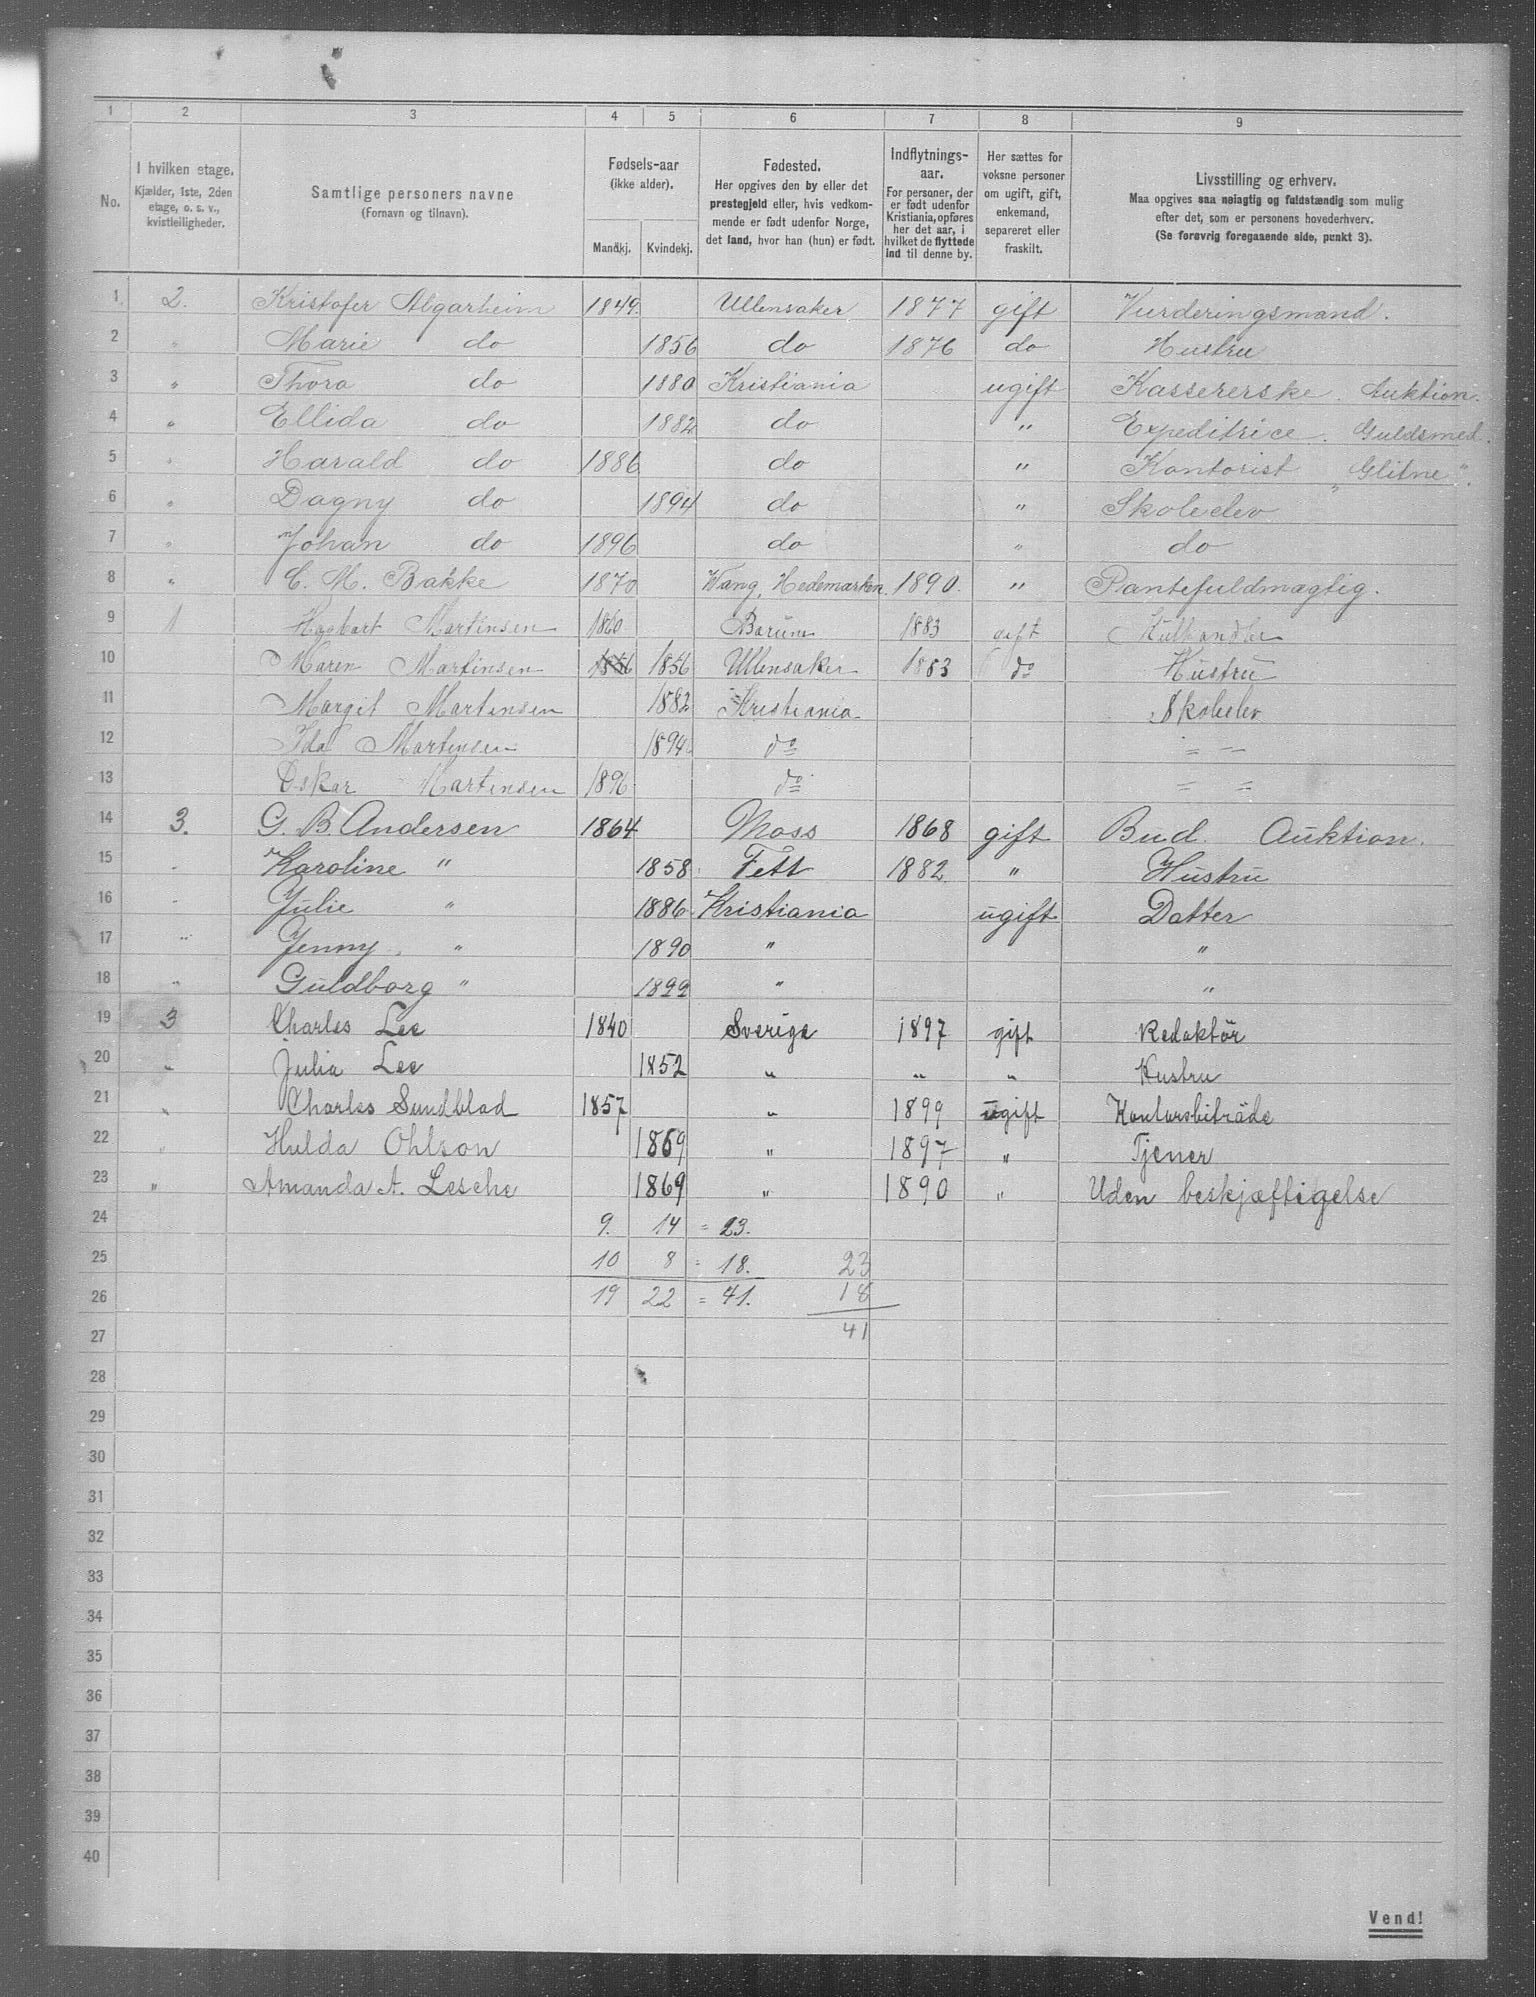 1 2 3 4 5 6 7 8 9
No.
I hvilken etage.
Kjælder, 1ste, 2den
etage, o. s. v.,
kvistleiligheder.
Samtlige personers navne
(Fornavn og tilnavn).
Fødsels-aar
(ikke alder).
Mandkj. Kvindekj.
Fødested.
Her opgives den by eller det
prestegjeld eller, hvis vedkom-
mende er født udenfor Norge,
det land, hvor han (hun) er født.
Indflytnings-
aar.
For personer, der
er født udenfor
Kristiania, opføres
her det aar, i
hvilket de flyttede
ind til denne by.
Her sættes for
voksne personer
om ugift, gift,
enkemand,
separeret eller
fraskilt.
Livsstilling og erhverv.
Maa opgives saa nøiagtig og fuldstændig som mulig
efter det, som er personens hovederhverv.
(Se forøvrig foregaaende side, punkt 3).
1 2. Kristofer Algarheim 1849. Ullensaker 1877 gift Vurderingsmand.
2 " Marie do 1856 do 1876 do Hustru
3 " Thora do 1880 Kristiania ugift Kassererske. Auktion.
4 " Ellida do 1882 do " Expeditrice. Guldsmed.
5 " Harald do 1886 do " Kontorist "Glitne".
6 " Dagny do 1894 do " Skoleelev
7 " Johan do 1896 do " do
8 " C. M. Bakke 1870 Vang, Hedemarken. 1890. " Pantefuldmægtig.
9 1 Hagbart Martinsen 1860 Bærum 1883 gift Kulhandler
10 Maren Martinsen 1856 1856 Ullensaker 1883 do Hustru
11 Margit Martinsen 1882 Kristiania Skoleelev
12 Ida Martinsen 1894 do = =
13 Oskar Martinsen 1896 do = =
14 3. G. B. Andersen 1864 Moss 1868 gift Bud. Auktion.
15 " Karoline " 1858 Fett 1882 " Hustru
16 " Julie " 1886 Kristiania ugift Datter
17 " Jenny " 1890 " "
18 " Guldborg " 1899 " "
19 3 Charles Lee 1840 Sverige 1897 gift Redaktör
20 " Julia Lee 1852 " " " Hustru
21 " Charles Sundblad 1857 " 1899 ugift Kontorsbiträde
22 " Hulda Ohlson 1869 " 1897 " Tjener
23 " Amanda A. Lesche 1869 " 1890 " Uden beskjæftigelse
24 9. 14 = 23.
25 10 8 = 18. 23
26 19 22 = 41. 18
27 41
28
29
30
31
32
33
34
35
36
37
38
39
40
Vend!